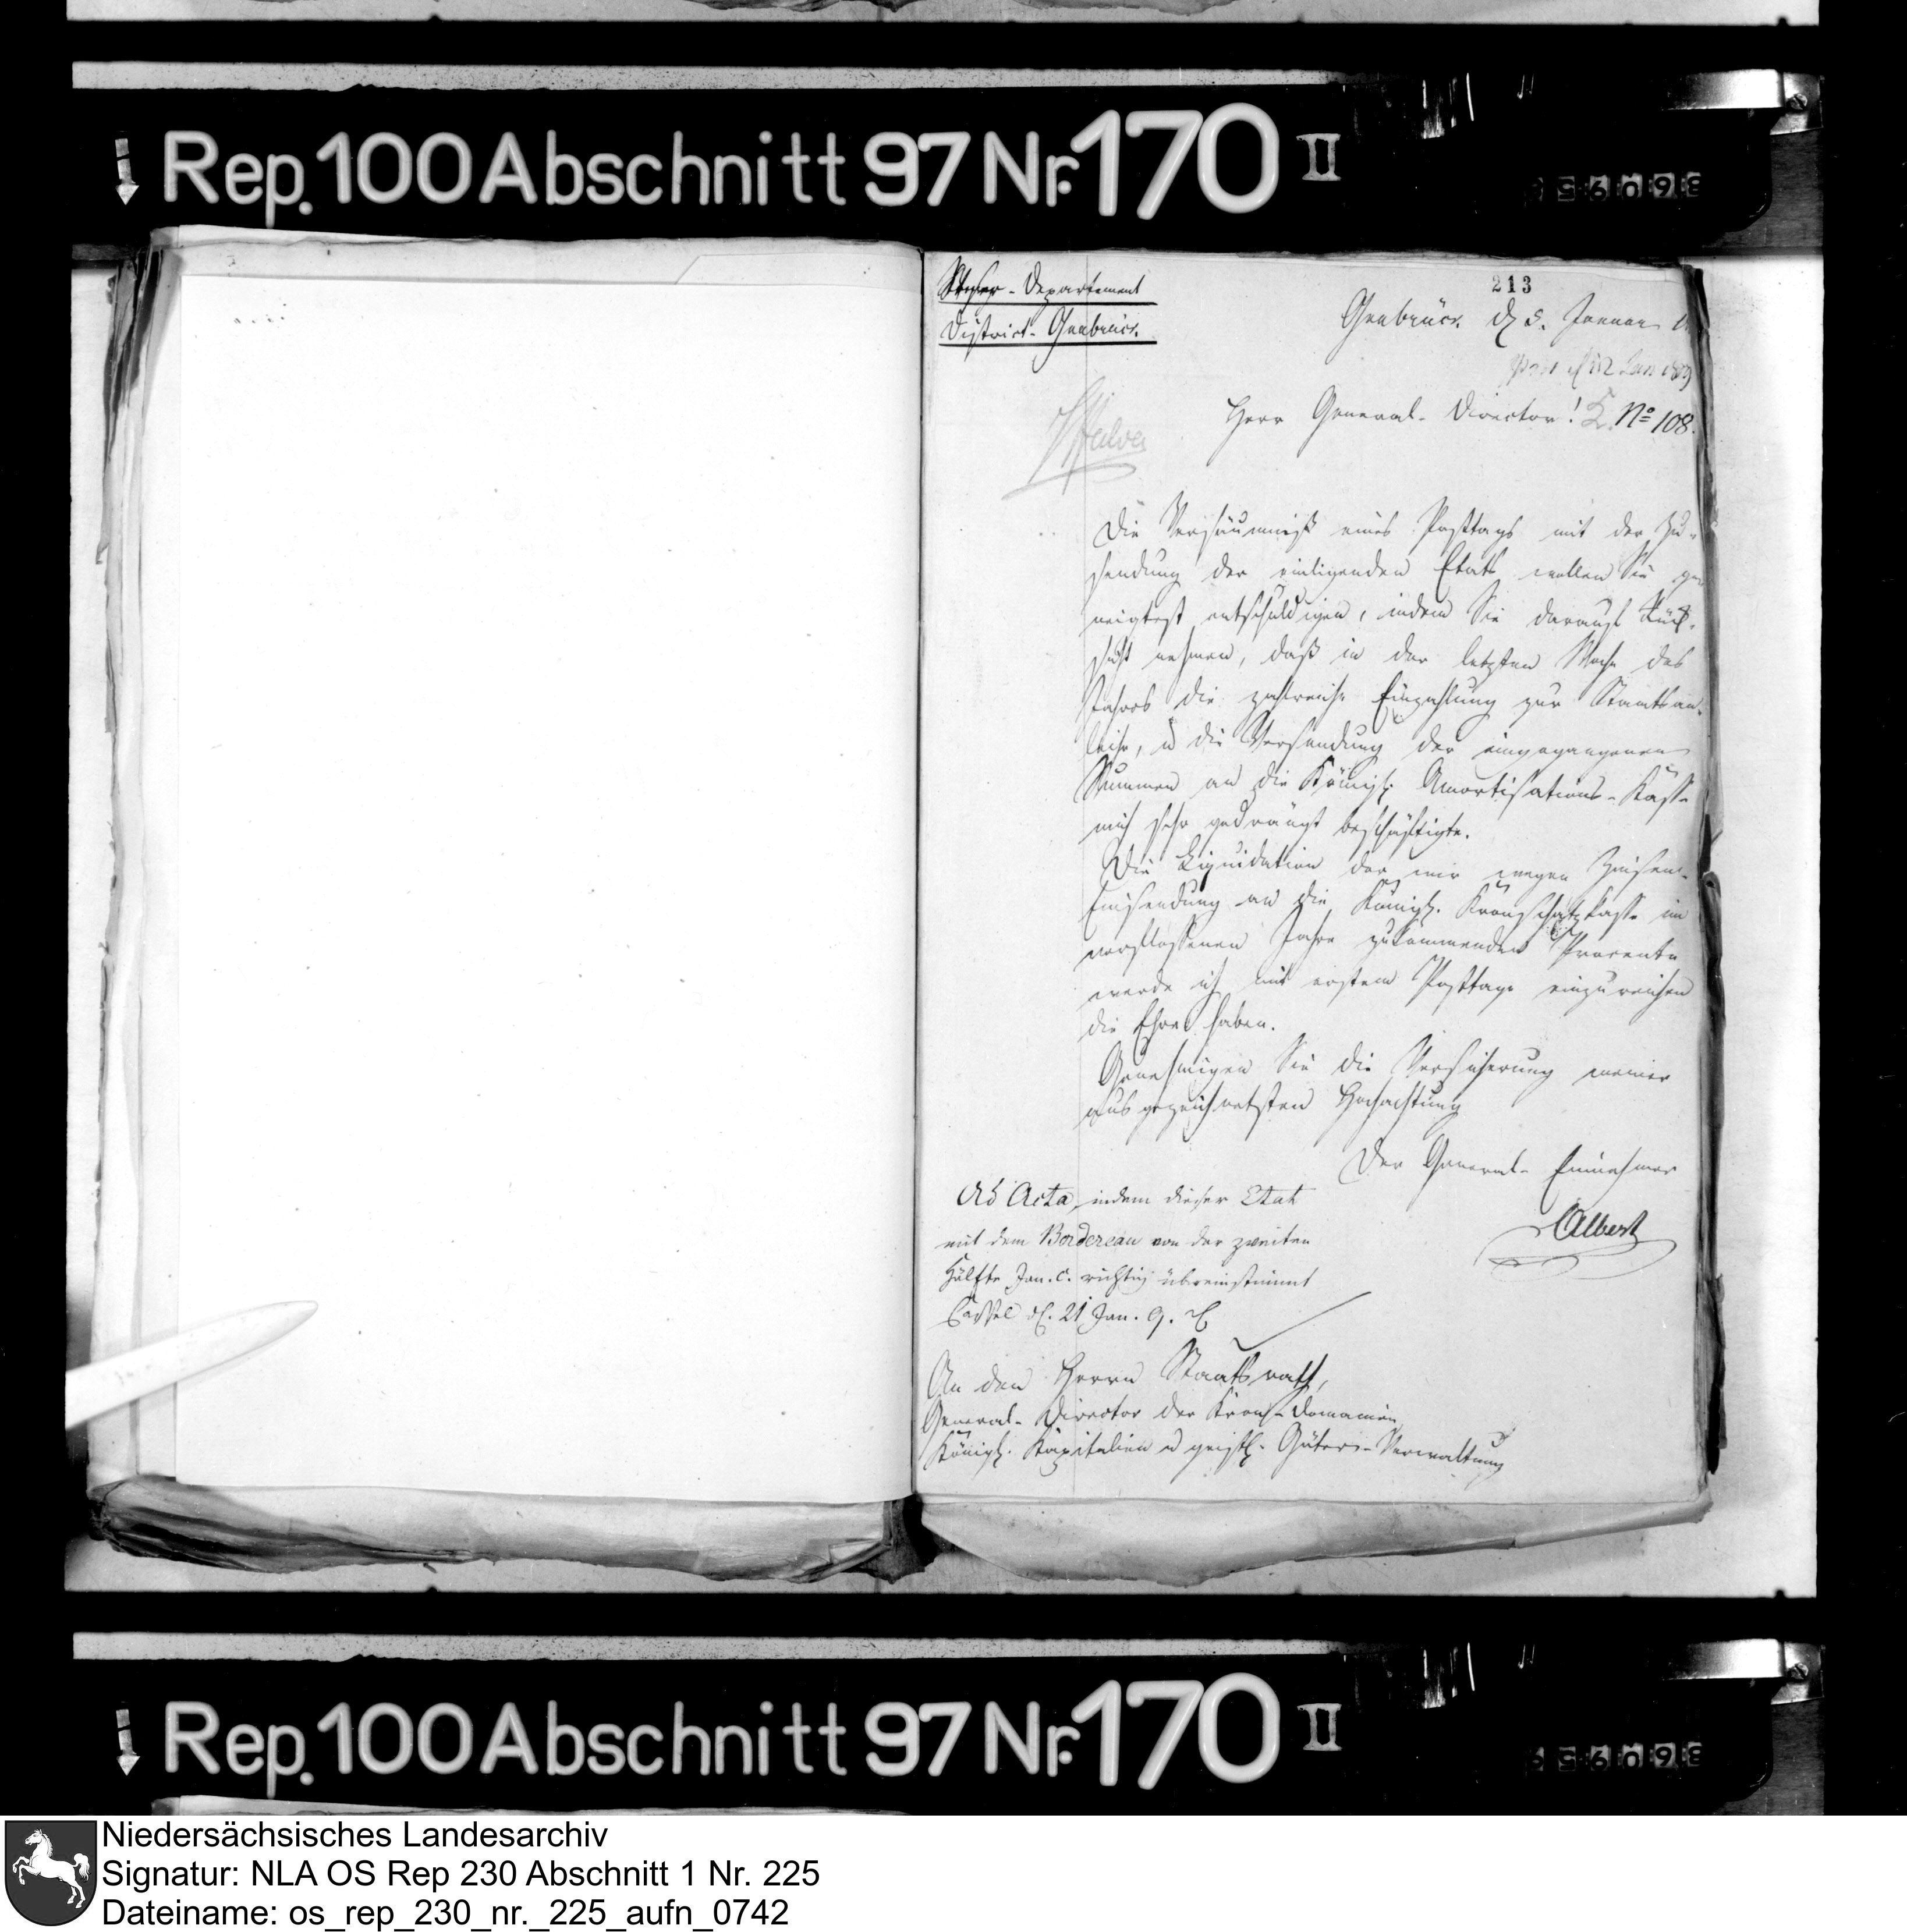 Rep. 100 Abschnitt 97 Nr. 170 II
213
Weser-Departement
District-Osnabrück.
Osnabrück d 5. Januar
12 Jan 1809
Herr General-Director! No 108.
Die Versäumniß eines Posttags mit der Zu-
sendung der einligenden Etats wollen Sie ge
neigtest entschuldigen, indem Sie darauf Rück-
sicht nehmen, daß in der letzten Woche des
Jahres die zahlreiche Einzahlung zur Staatsan-
leihe, u die Versendung der eingegangenen
Summen an die Königl. Amortisations-Kasse
mich sehr gedrängt beschäftigte.
Die Liquidation der mir wegen Zinsen-
Einsendung an die Königl. Kronschatzkasse im
verflossenen Jahre zukommenden Procente
werde ich mit erstem Posttage einzureichen
die Ehre haben.
Genehmigen Sie die Versicherung meiner
ausgezeichnetsten Hochachtung
Der General-Einnehmer
Albert
Ad Acta, indem dieser Etat
mit dem Bordereau von der zweiten
Hälfte Jan. c. richtig übereinstimmt
Cassel d. 21 Jan. 9.
An den Herrn Staatsrath,
General-Director der Kron-Domainen,
Königl. Kapitalien u geistl. Güter-Verwaltung
Rep. 100 Abschnitt 97 Nr. 170 II
Niedersächsisches Landesarchiv
Signatur: NLA OS Rep 230 Abschnitt 1 Nr. 225
Dateiname: os_rep_230_nr._225_aufn_0742